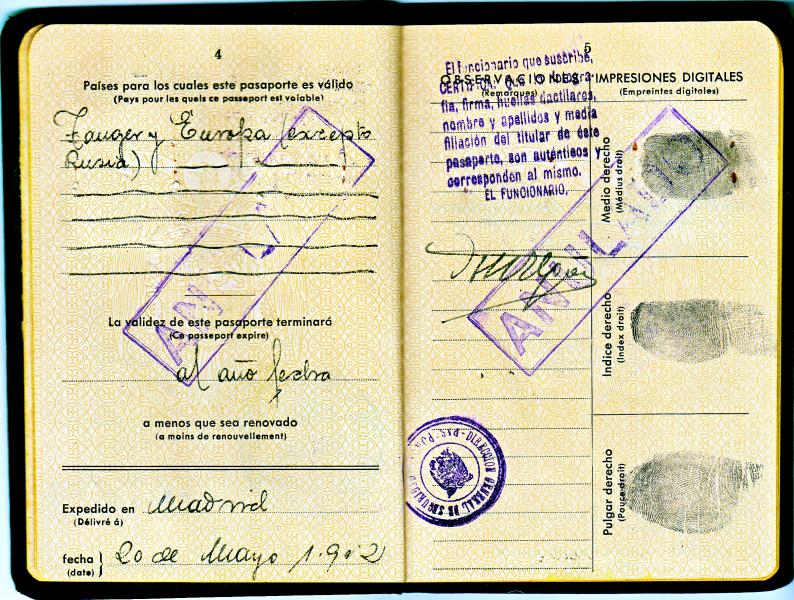 4
Países para los cuales este pasaporte es válido
(Pays pour les quels ce passeport est valable)
Tanger y Europa (excepto
Rusia)
ANULADO
La validez de este pasaporte terminará
(Ce passeport expire)
al año fecha
a menos que sea renovado
(a moins de renouvellement)
Expedido en Madrid
(Délivré á)
fecha } 20 de Mayo
(date)
5
OBSERVACIONES
(Remarques)
IMPRESIONES DIGITALES
(Empreintes digitales)
El funcionario que suscribe,
CERTIFICA: Que la fotogra-
fía, firma, huellas dactilares,
nombre y apellidos y media
filiación del titular de éste
pasaporte, son auténticos y
corresponden al mismo.
EL FUNCIONARIO,
ANULADO
DIRECCION GENERAL DE SEGURIDAD
Medio derecho
(Médius droit)
Indice derecho
(Index droit)
Pulgar derecho
(Pouce droit)